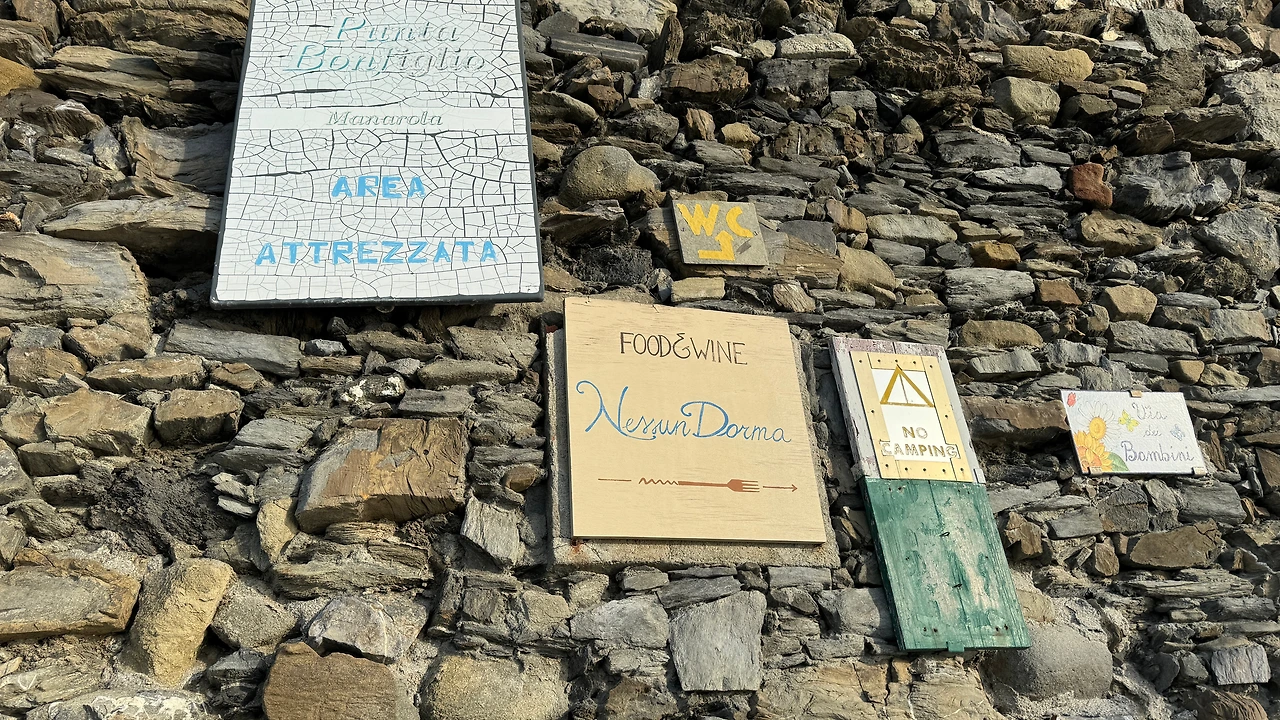 Punta
Bonfiglio
Manarola
AREA
ATTREZZATA
WC
FOOD&WINE
Nessun Dorma
NO
CAMPING
Via
dei
Bambini